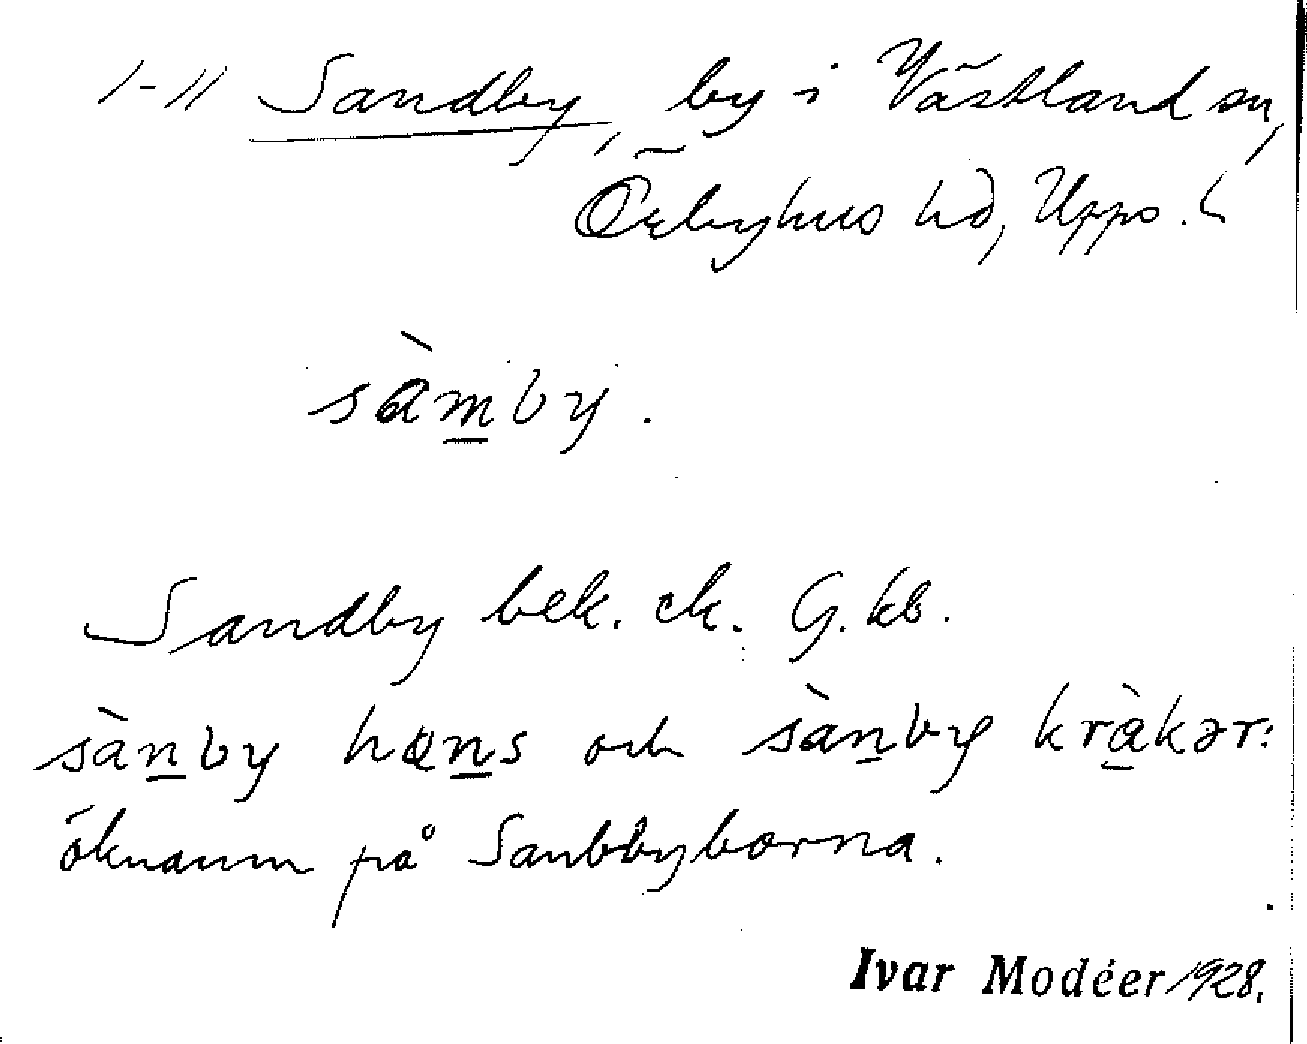 1-11 Sandby, by i Västland sn,
Örbyhus hd, Upps. l
sàm̲by.
Sandby bek. ek. G. kb.
sàn̲by hɑn̲s och sàn̲by krà̲kər:
öknamn på Sandbyborna.
Ivar Modéer 1928.